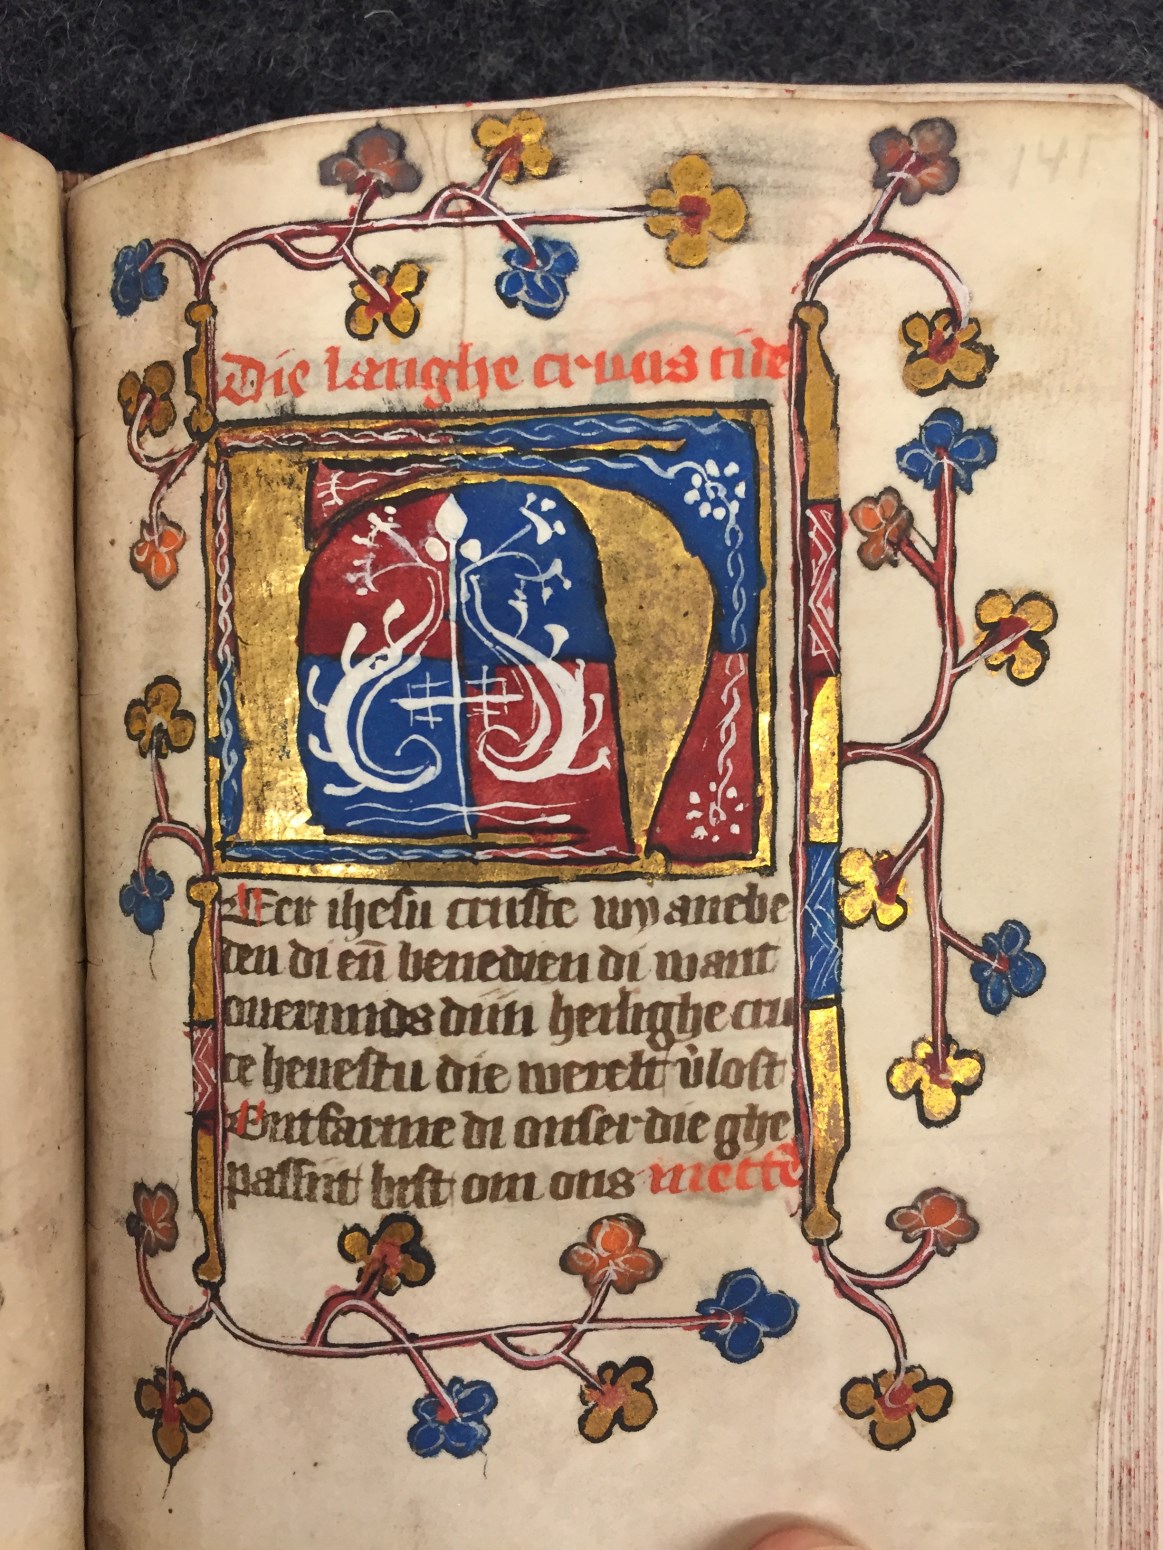 145
Die langhe cruus tide
H
Her ihesu criste wy anebe
den di eñ benedien di want
ouermids dijn heilighe cru
ce heuestu die werelt v̉lost
Ontfarme di onser die ghe
passijt bist om ons mettē